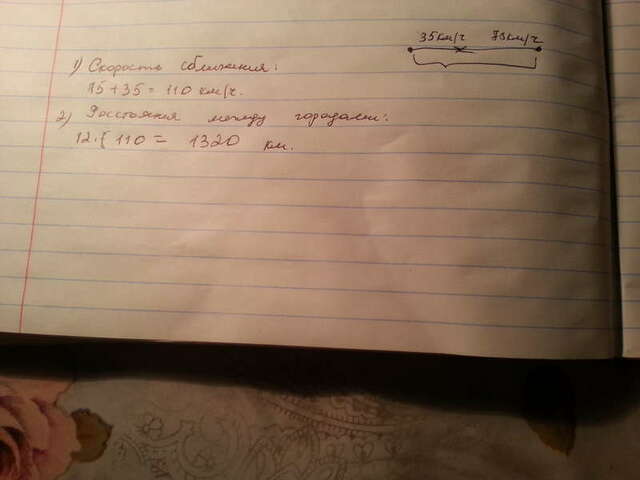 35км/ч 75км/ч
1) Скорость сближения:
75+35=110 км/ч.
2) Расстояния между городами:
12·{110= 1320 км.